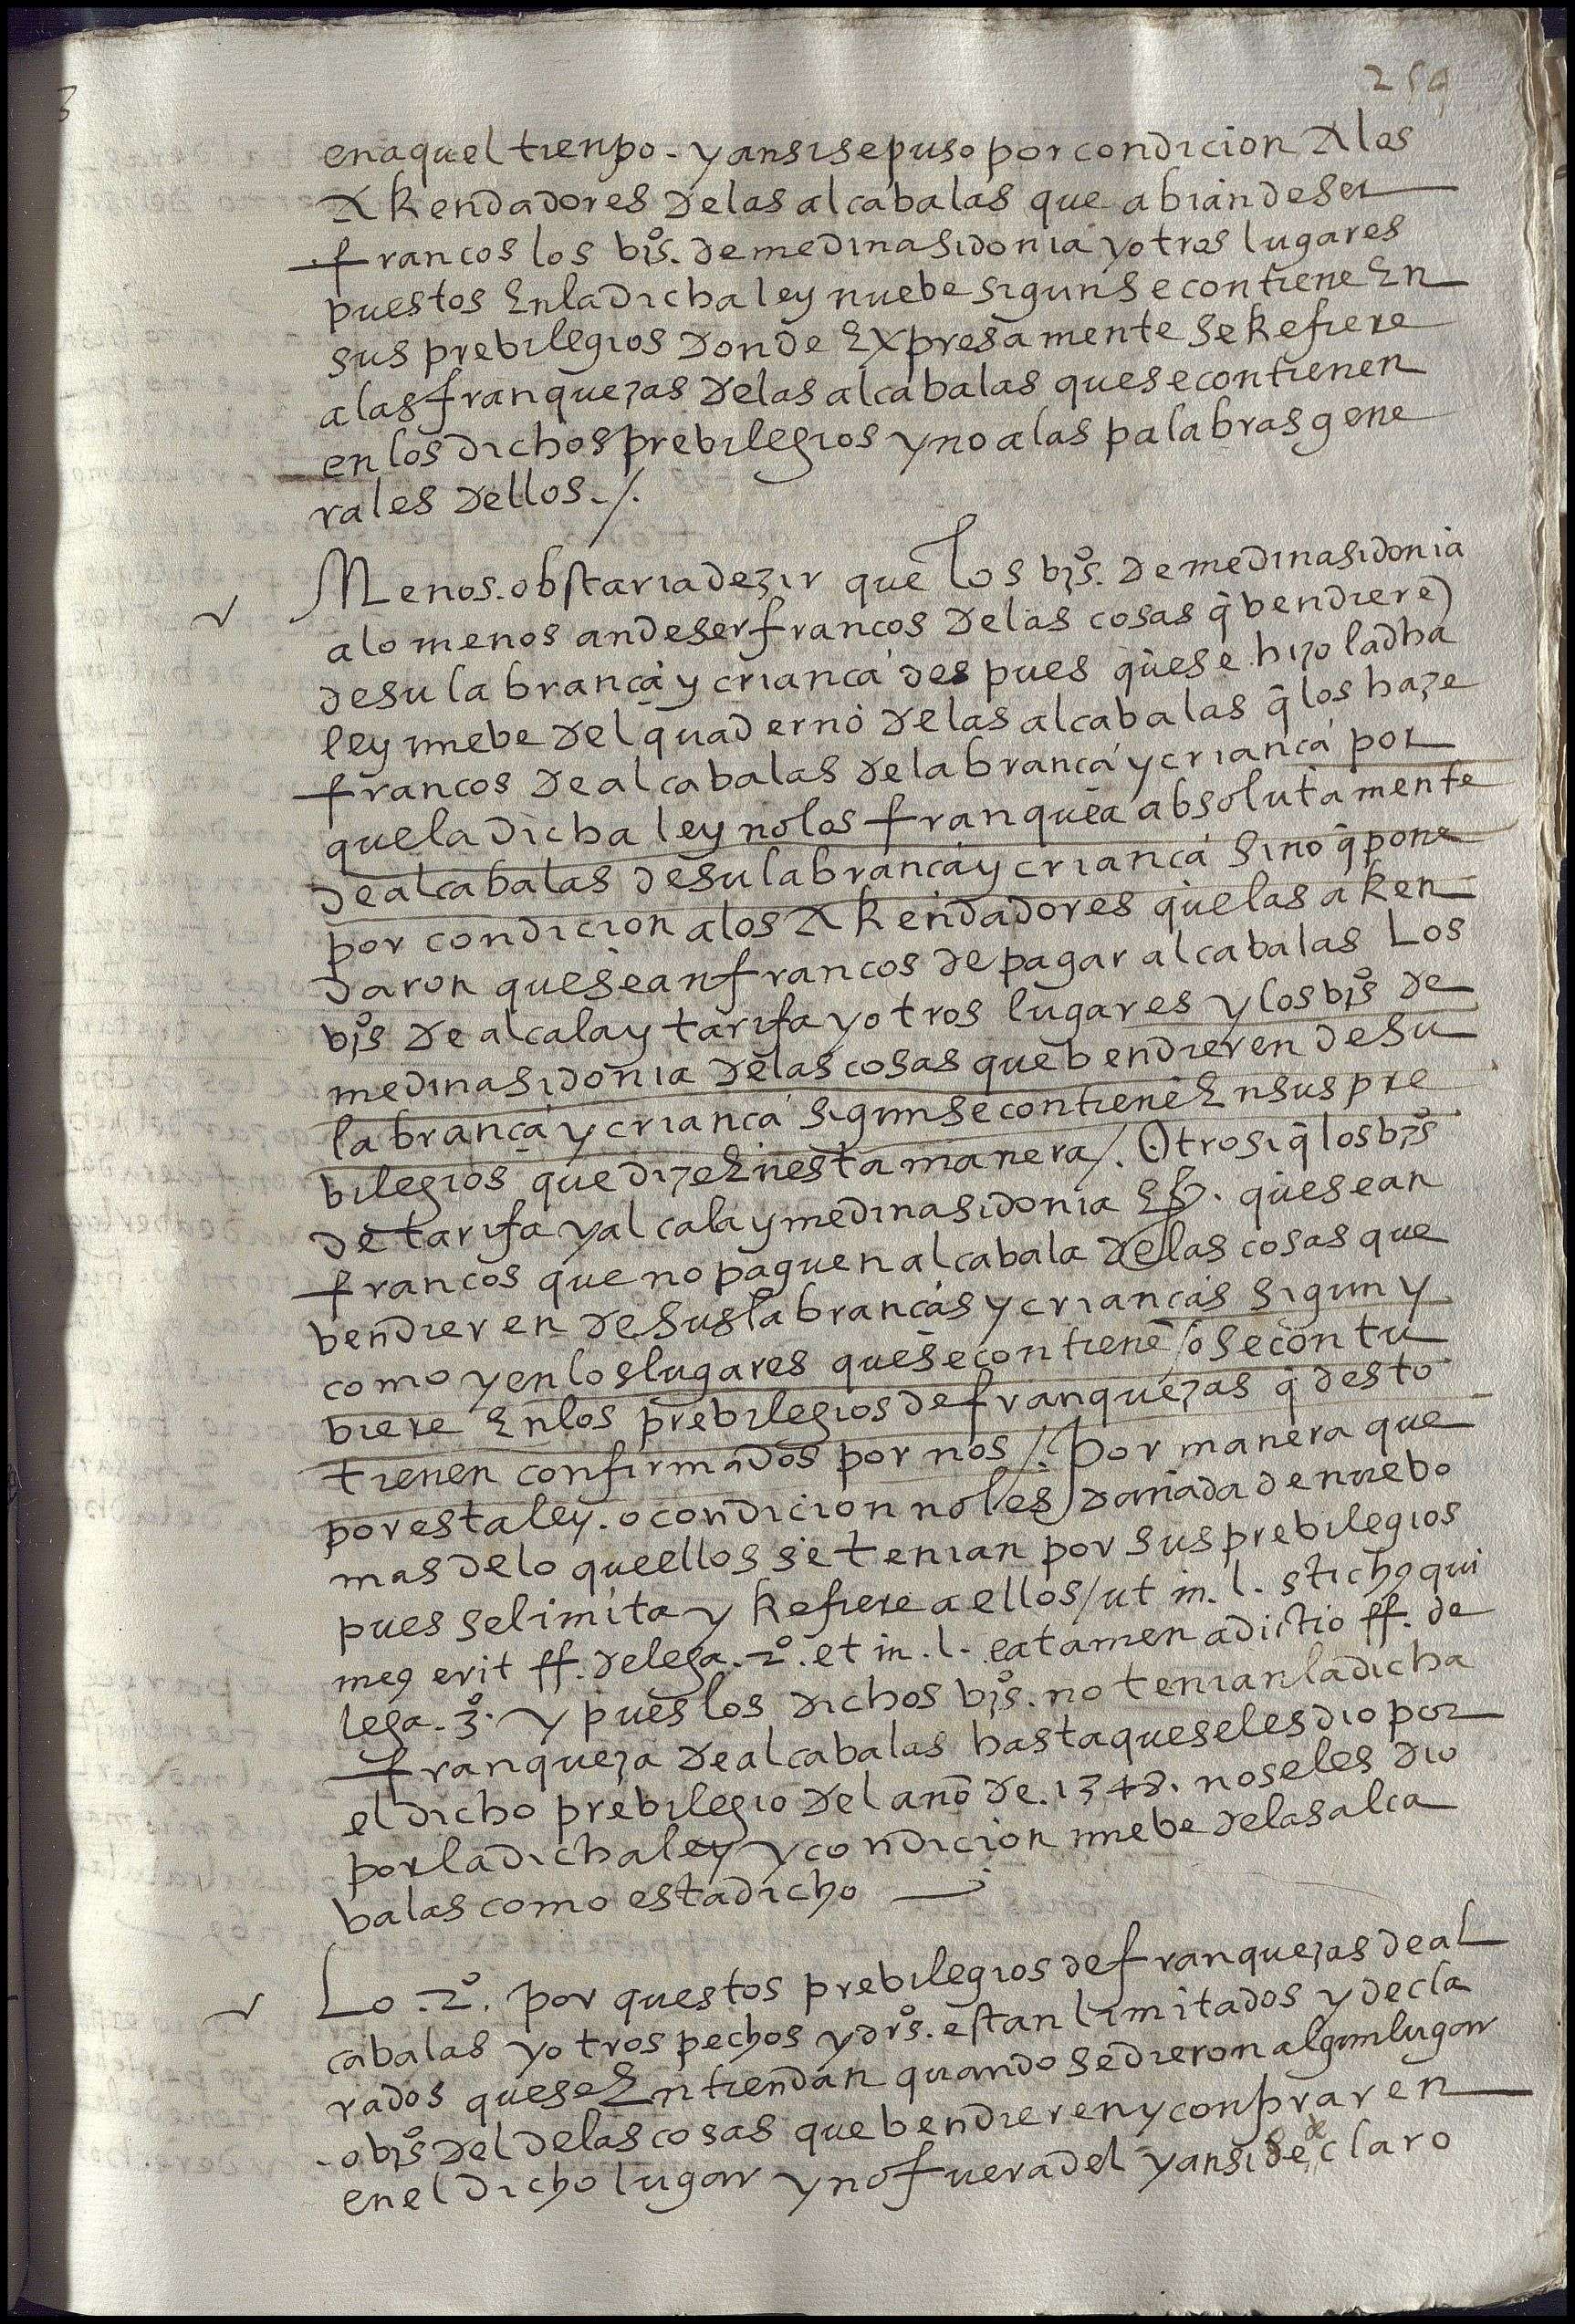 en aquel tienpo. y ansi se puso por condicion a los
arrendadores de las alcabalas que abian de ser
francos los bzos. de medinasidonia y otros lugares
puestos en la dicha ley nuebe sigun se contiene en
sus prebilegios donde expresamente se refiere
a las franquezas de las alcabalas que se contienen
en los dichos prebilegios y no a las palabras gene
rales dellos./.
Menos. obstaria dezir que los bzos. de medinasidonia
a lo menos an de ser francos de las cosas q̃ bendiere
de su labrança y criança despues que se hizo la dha
ley nuebe del quaderno de las alcabalas q̃ los haze
francos de alcabalas de labrança y criança por
que la dicha ley no los franquea absolutamente
de alcabalas de su labrança y criança sino q̃ pone
por condicion a los arrendadores que las arren
daron que sean francos de pagar alcabalas Los
bzos de alcala y tarifa y otros lugares y los bzos de
medinasidonia de las cosas que bendieren de su
labrança y criança sigun se contiene en sus pre
bilegios que dize en esta manera/. Otrosi q̃ los bzos
de tarifa y alcala y medinasidonia &. que sean
francos que no paguen alcabala de las cosas que
bendieren de sus labranças y crianças sigun y
como y en los lugares que se contiene / o se contu
biere en los prebilegios de franquezas q̃ desto
tienen confirmados por nos /. Por manera que
por esta ley. o condicion no les da nada de nuebo
mas de lo que ellos se tenian por sus prebilegios
pues se limita y refiere a ellos / ut in. l. stichꝰ qui
meꝰ erit ff. de lega. 2º. et in. l. ea tamen adictio ff. de
lega. 3º. y pues los dichos bzos. no tenian la dicha
franqueza de alcabalas hasta que se les dio por
el dicho prebilegio del año de. 1348. no se les dio
por la dicha ley y condicion nuebe de las alca
balas como esta dicho
Lo. 2º. porque estos prebilegios de franquezas de al
cabalas y otros pechos y dros. estan limitados y decla
rados que se entiendan quando se dieron algun lugar
o bzos del de las cosas que bendieren y conpraren
en el dicho lugar y no fuera del y ansi se declaro